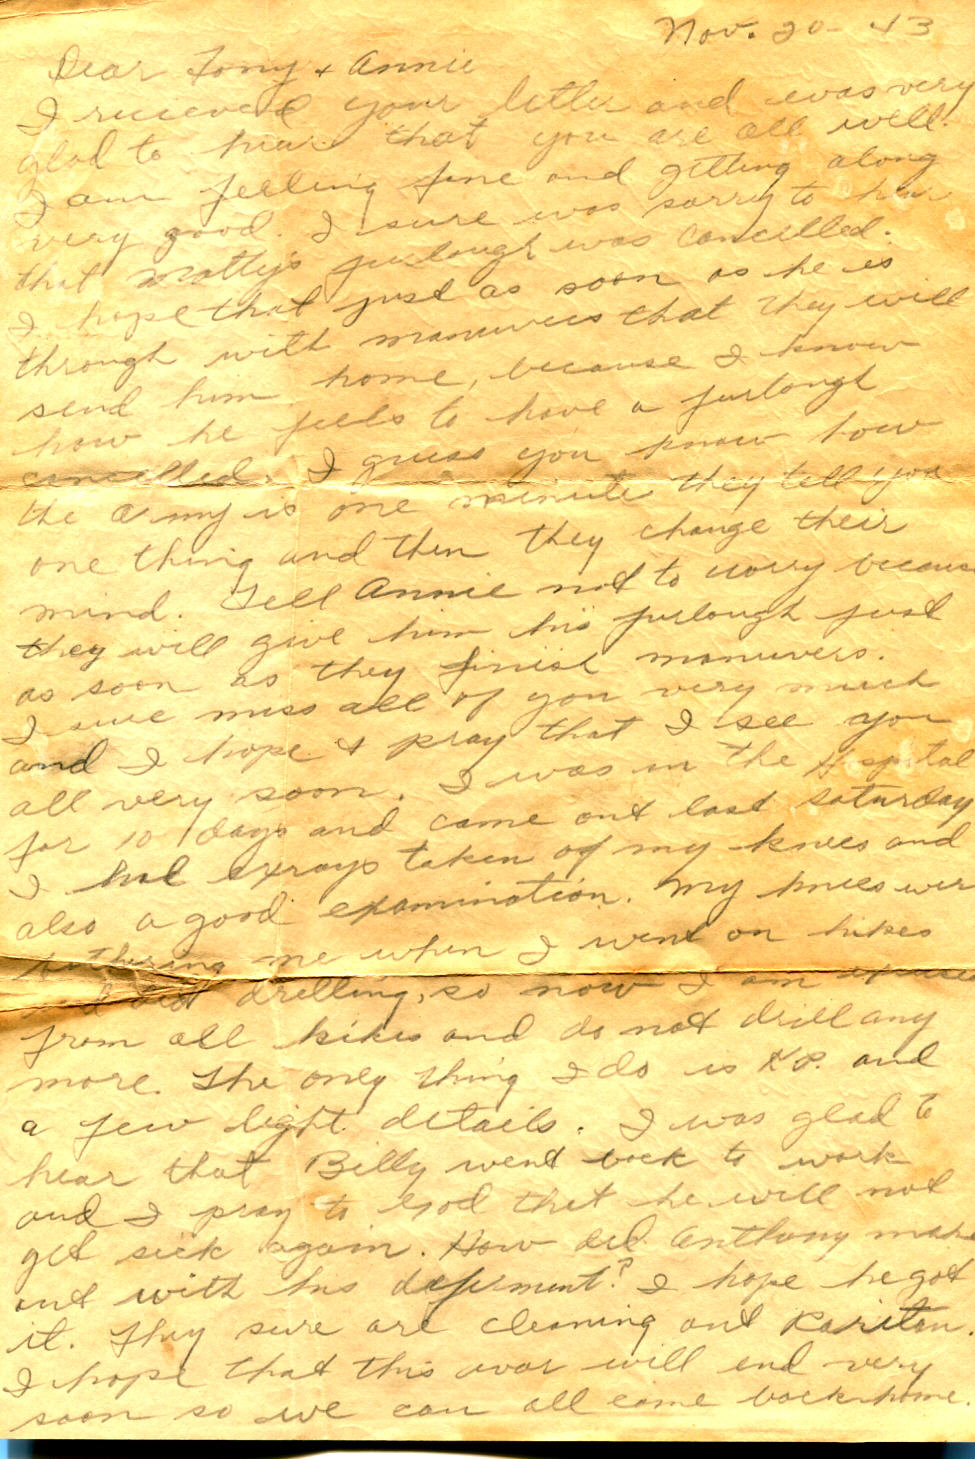 Nov. 20 - 43
Dear Tony + Annie
I recieved your letter and was very
glad to hear that you are all well.
I am feeling fine and getting along
very good. I sure was sorry to hear
that Matty's furlough was cancelled.
I hope that just as soon as he is
through with manuvers that they will
send him home, because I know
how he feels to have a furlough
cancelled. I guess you know how
the army is one minute they tell you
one thing and then they change their
mind. Tell Annie not to worry because
they will give him his furlough just
as soon as they finish manuvers.
I sure miss all of you very much
and I hope & pray that I see you
all very soon. I was in the Hospital
for 10 days and came out last saturday
I had exrays taken of my knees and
also a good examination. My knees wer
bothering me when I went on hikes
and drilling, so now I am
from all hikes and do not drill any
more. The only thing I do is K.P. and
a few light details. I was glad to
hear that Billy went back to work
and I pray to God that he will not
get sick again. How did Anthony make
out with his deferment? I hope he got
it. They sure are cleaning out Raritan.
I hope that this war will end very
soon so we can all come back home.